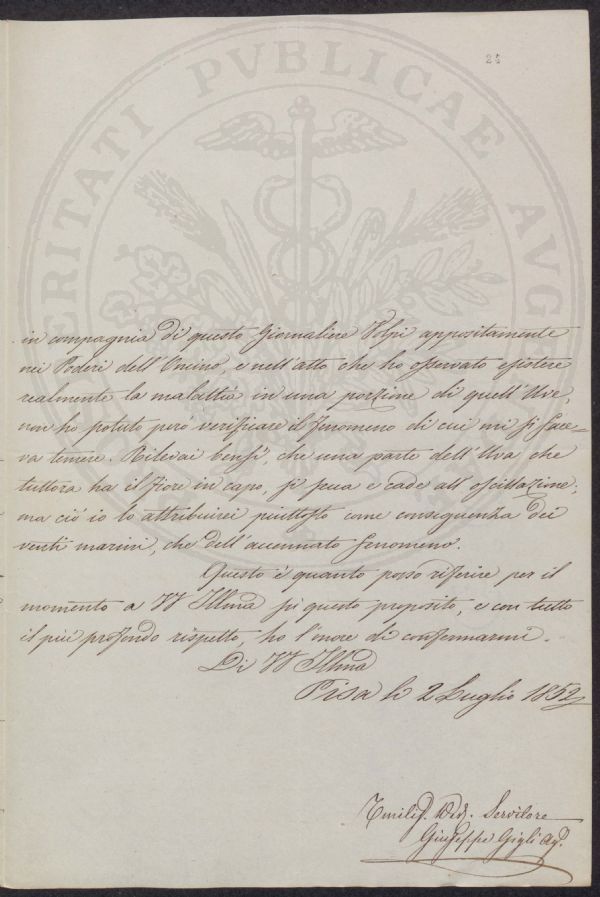 24
PROSPERITATI PVBLICAE AVG
in compagnia di questo Giornaliere Volpi appositamente
nei Poderi dell'Oncino, e nell'atto che ho osservato esistere
realmente la malattia in una porzione di quell'Uve,
non ho potuto però verificare il fenomeno di cui mi si face=
va temere. Rilevai bensì, che una parte dell'Uva che
tuttora ha il fiore in capo, si secca e cade all'oscillazione;
ma ciò io lo attribuirei piuttosto come conseguenza dei
venti marini, che dell'accennato fenomeno.
Questo è quanto posso riferire per il
momento a VS Illma su questo proposito, e con tutto
il più profondo rispetto ho l'onore di confermarmi.
Di VS Illma
Pisa li 2 Luglio 1852
Umilis. Dev. Servitore
Giuseppe Gigli Ag.